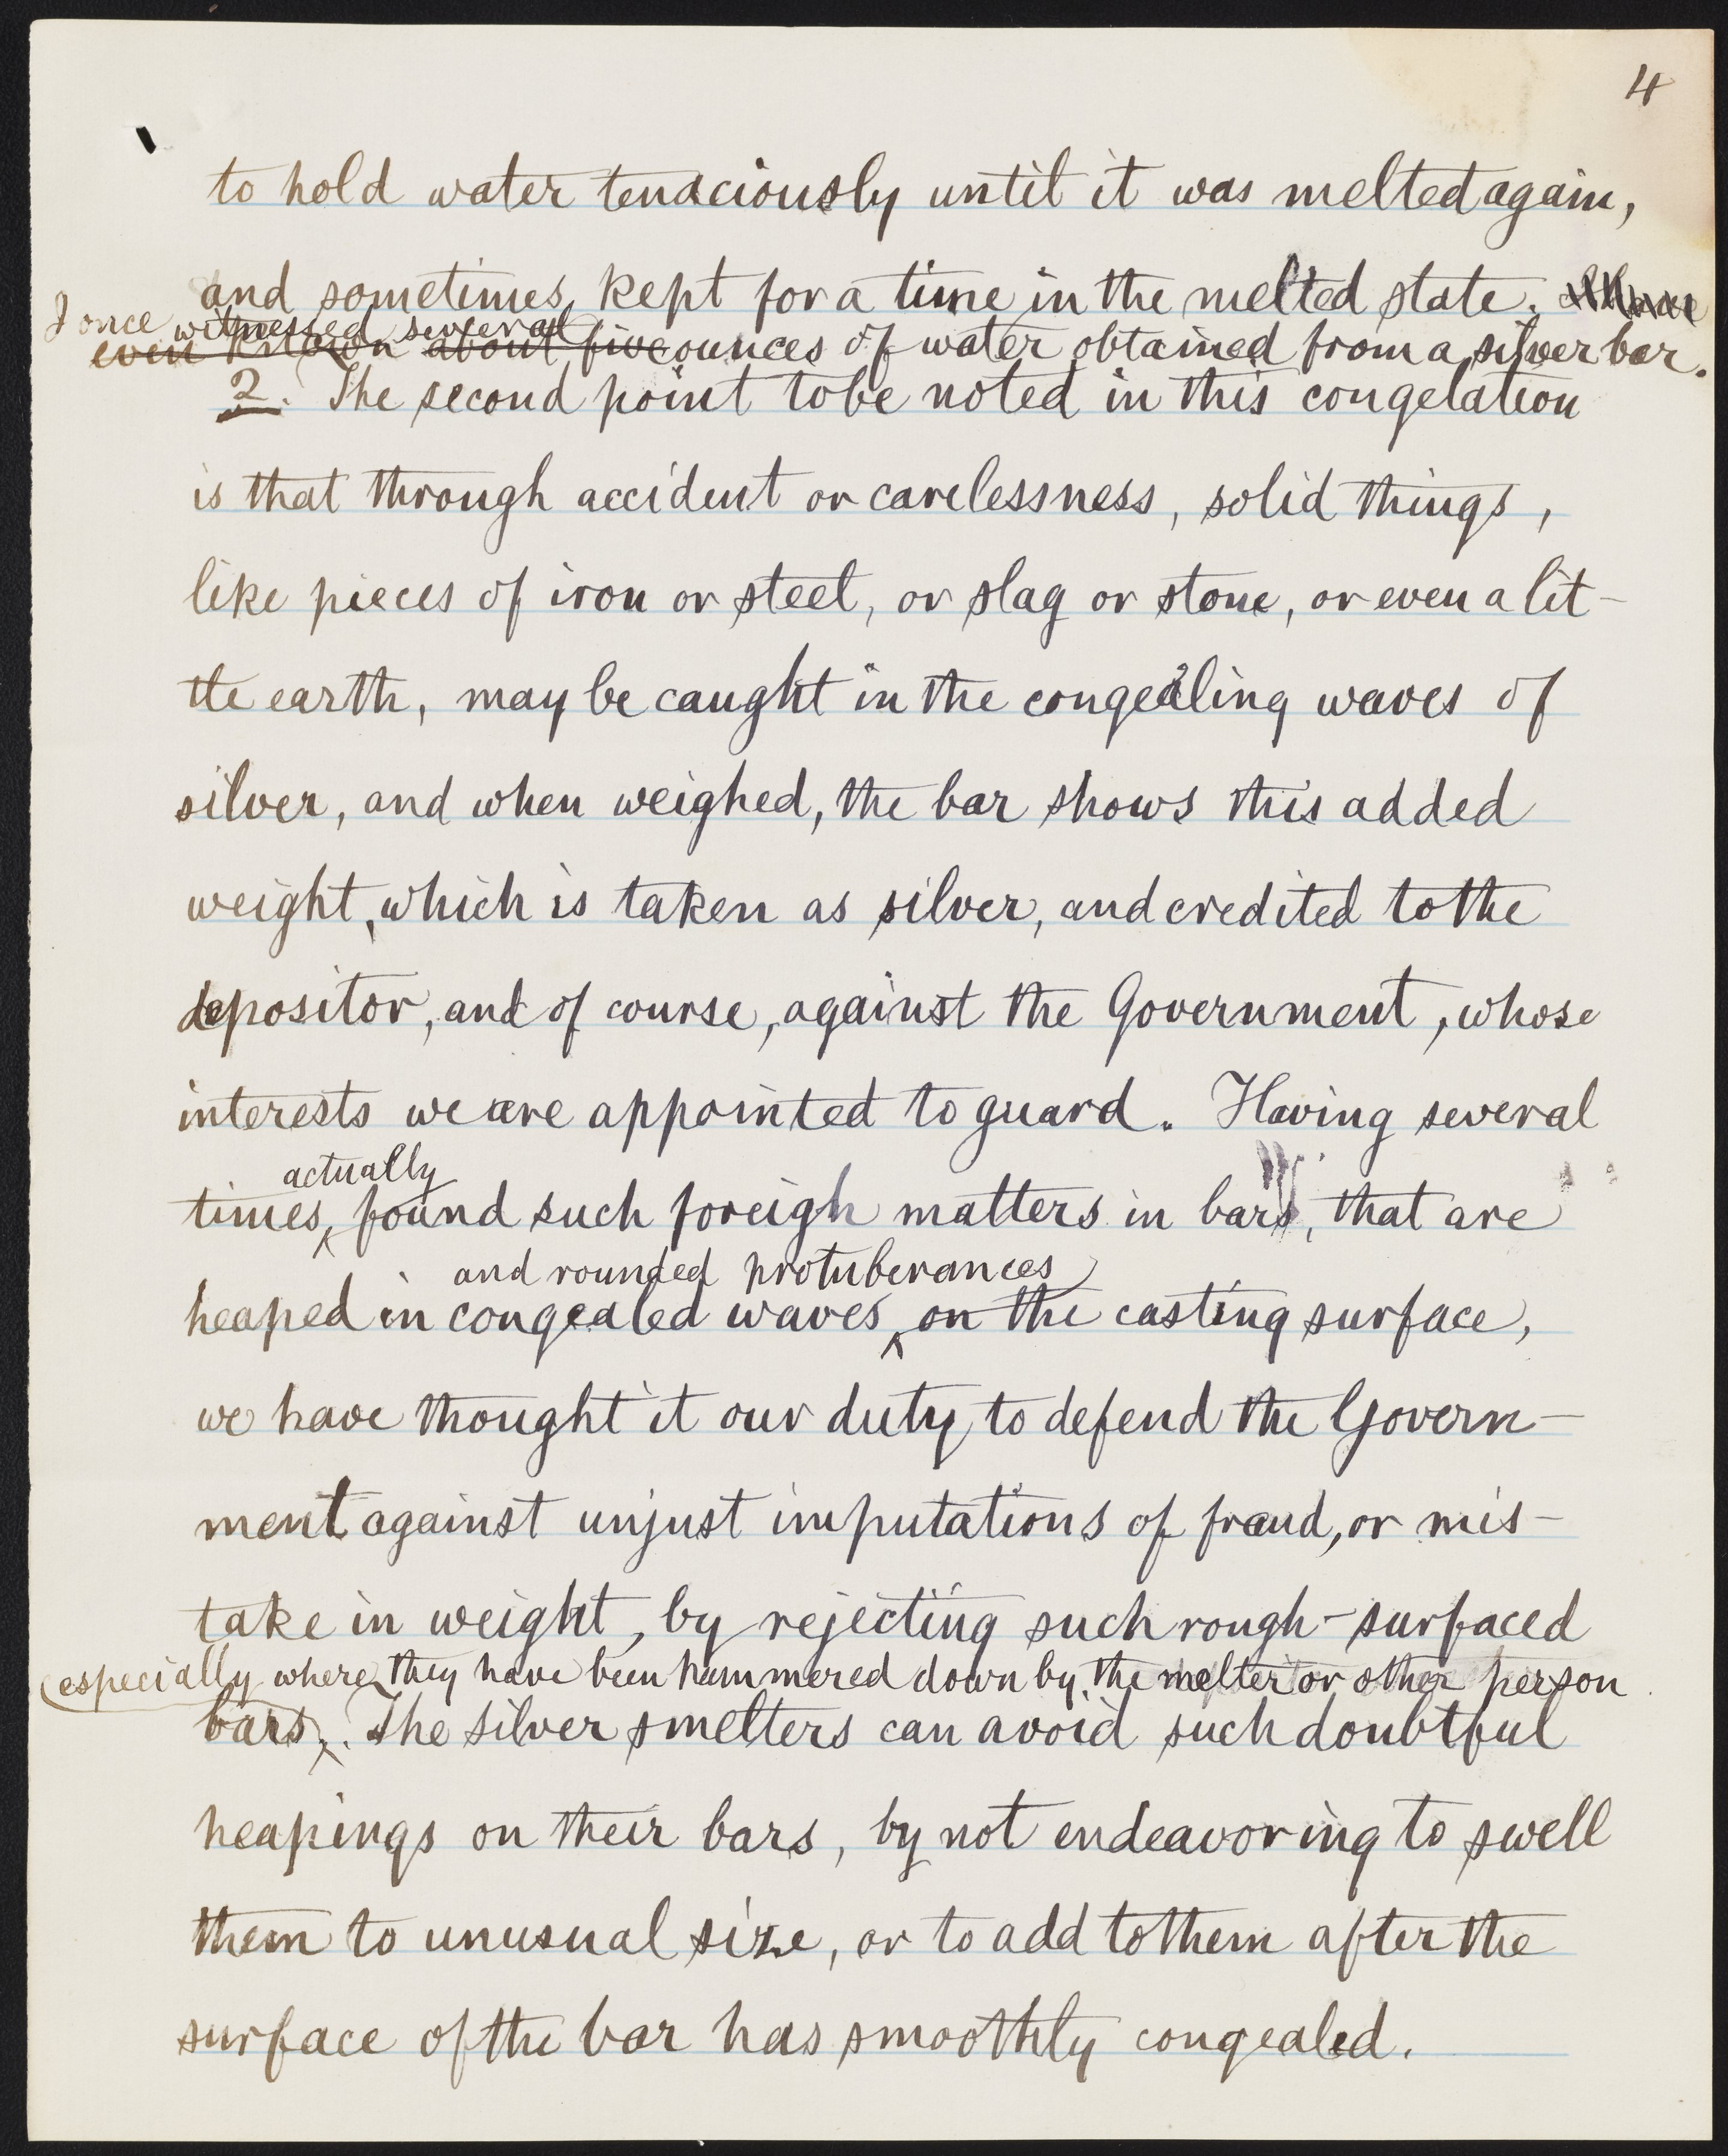 4
to hold water tenaciously until it was melted again,
and sometimes, kept for a time in the melted state.
I once witnessed several
even known about five ounces of water obtained from a silver bar.
2. The second point to be noted in this congelation
is that through accident or carelessness, solid things,
like pieces of iron or steel, or slag or stone, or even a lit-
tle earth, may be caught in the congealing waves of
silver, and when weighed, the bar shows this added
weight, which is taken as silver, and credited to the
depositor, and of course, against the Government, whose
interests we are appointed to guard. Having several
actually
times, found such foreigh matters in bars, that are
and rounded protuberances
heaped in congealed waves on the casting surface,
we have thought it our duty to defend the Govern-
ment against unjust imputations of fraud, or mis-
take in weight, by rejecting such rough-surfaced
especially where they have been hammered down by the melter or other person
bars. The silver smelters can avoid such doubtful
heapings on their bars, by not endeavoring to swell
them to unusual size, or to add to them after the
surface of the bar has smoothly congealed.